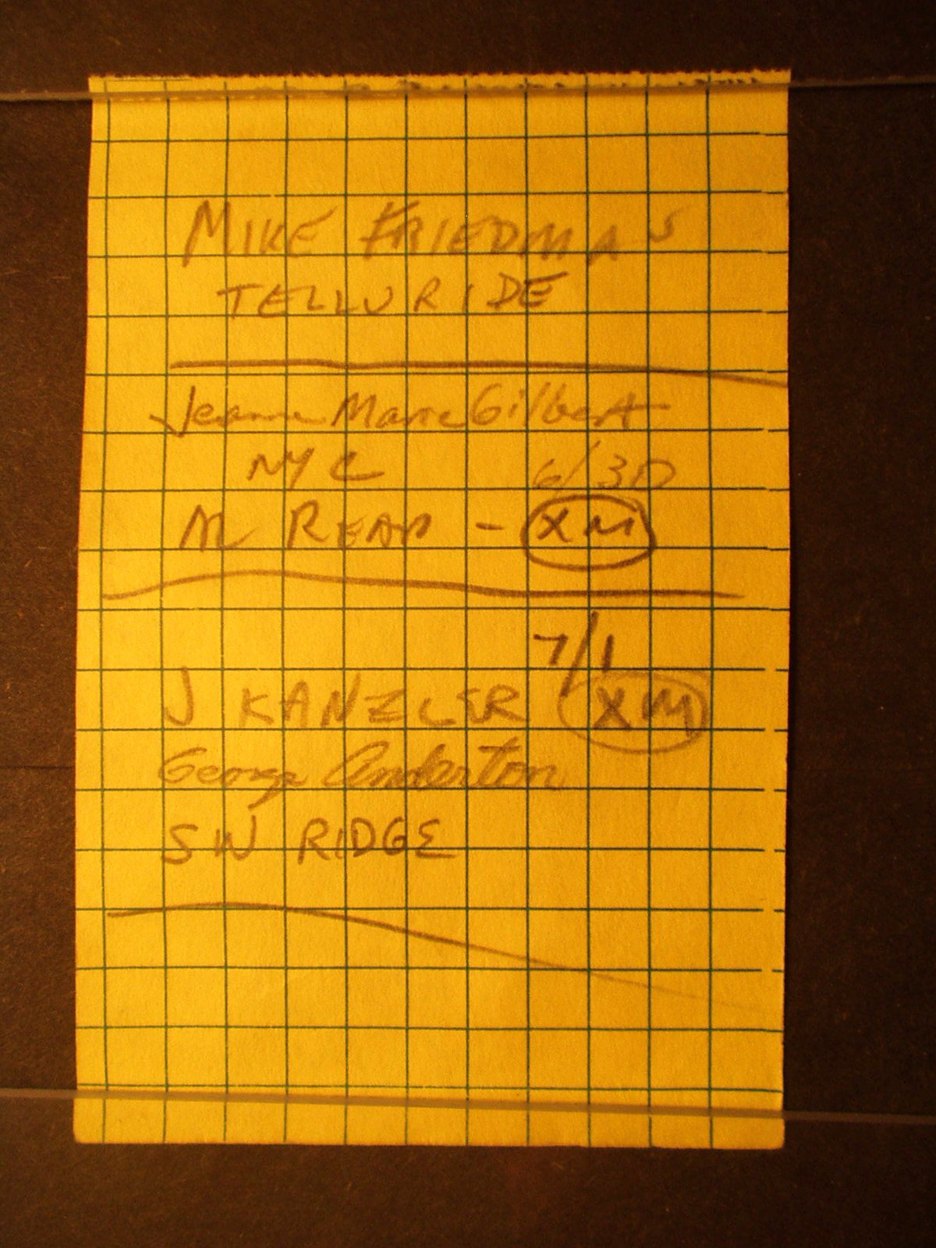 MIKE FRIEDMAS
TELLURIDE
Jeanne Marie Gilbert
NYC 6/30
AL READ - XM
7/1
J KANZLER XM
George Anderton
SW RIDGE